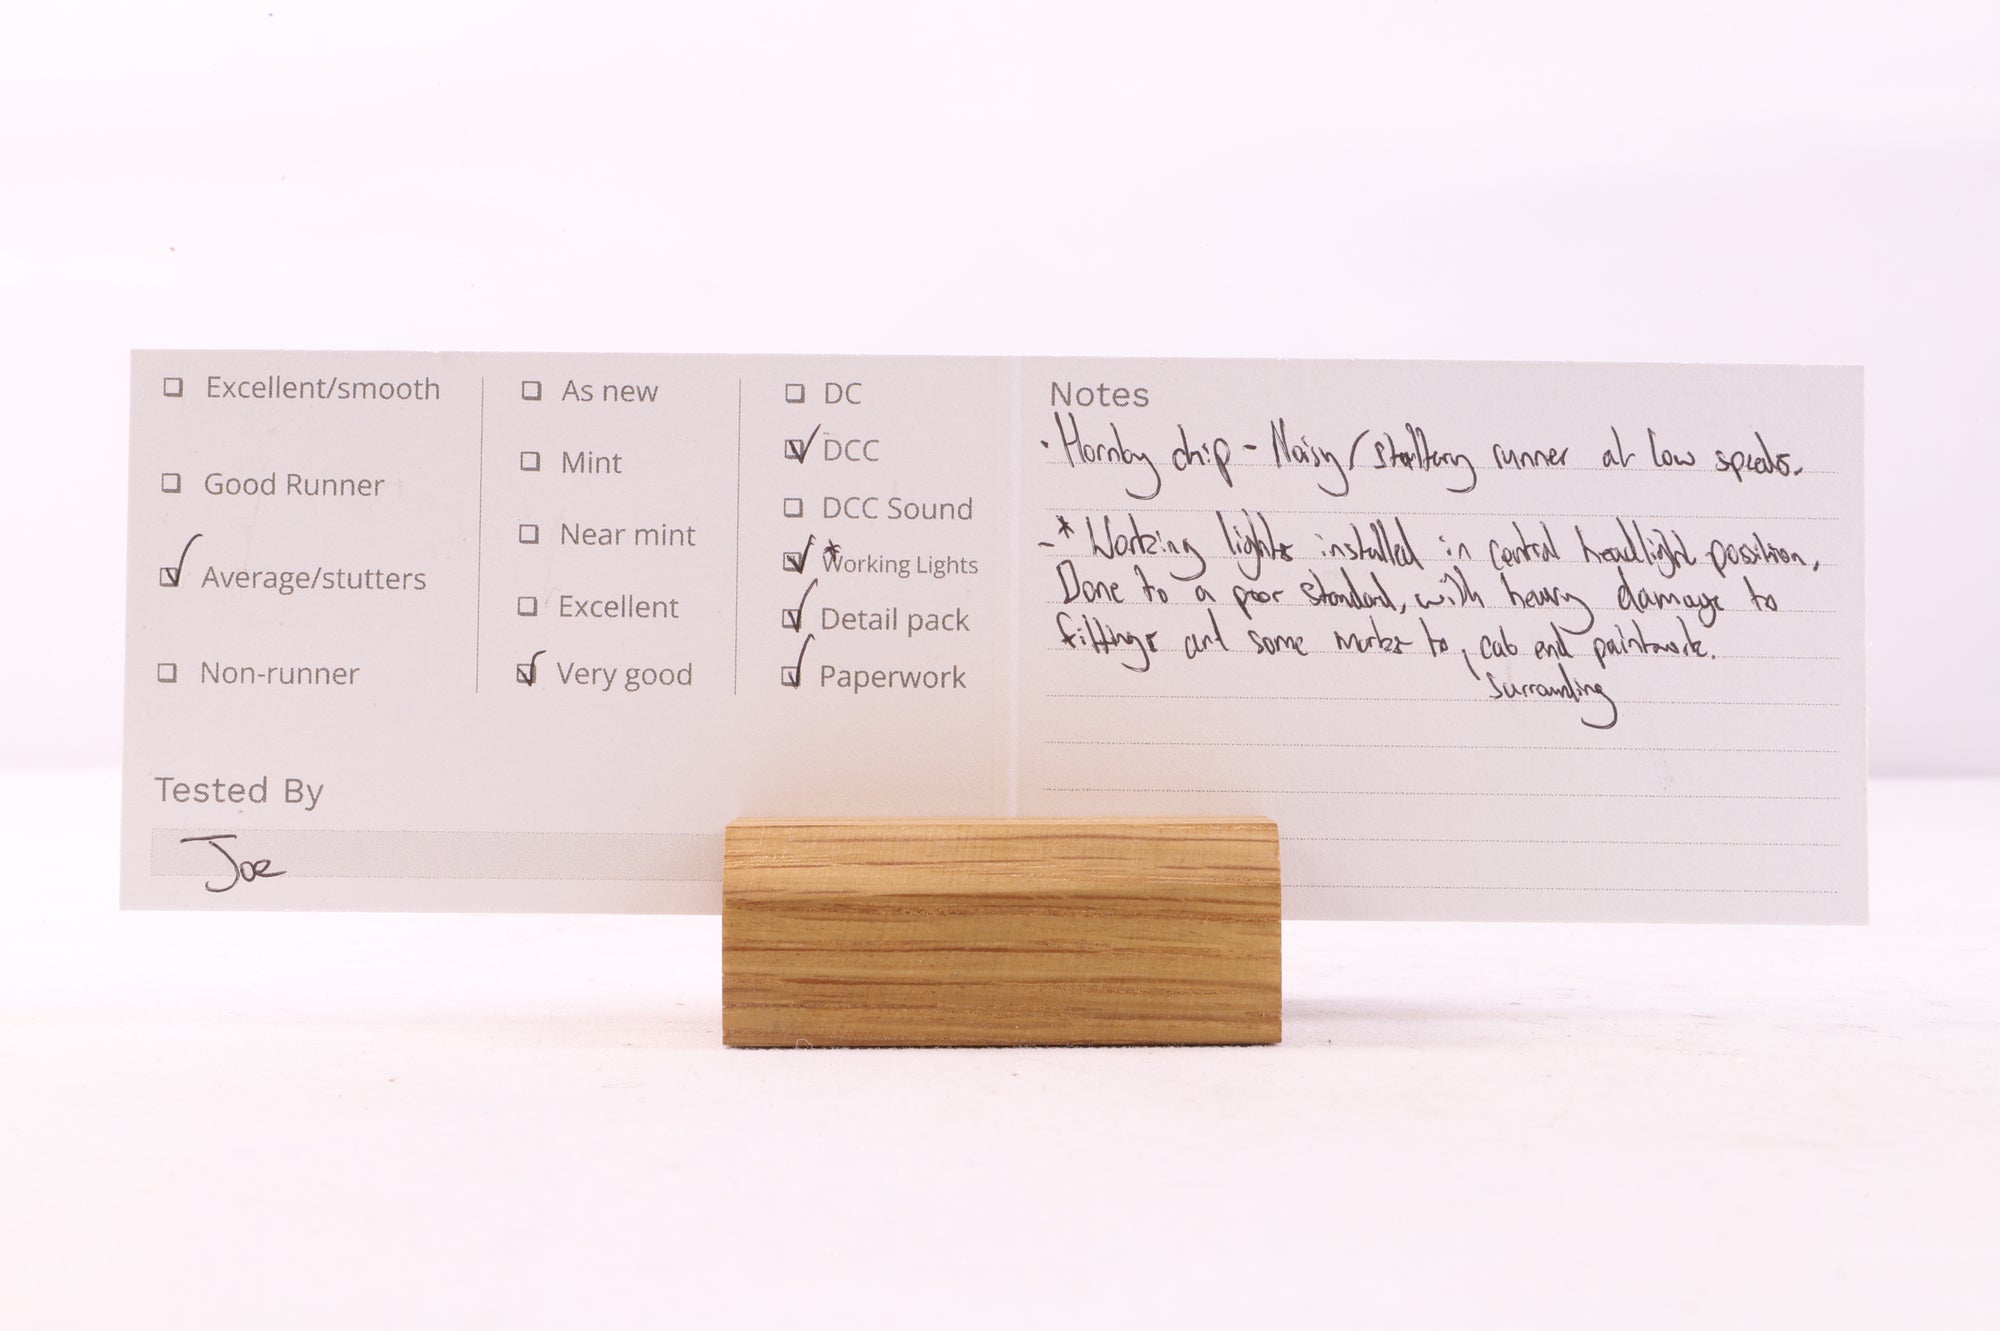 Excellent/smooth
Good Runner
Average/stutters
Non-runner
As new
Mint
Near mint
Excellent
Very good
DC
DCC
DCC Sound
*Working Lights
Detail pack
Paperwork
Tested By
Joe
Notes
· Hornby chip - Noisy/stuttery runner at low speeds.
-* Working lights installed in central headlight position,
Done to a poor standard, with heavy damage to
fittings and some marks to, cab end paintwork.
surrounding